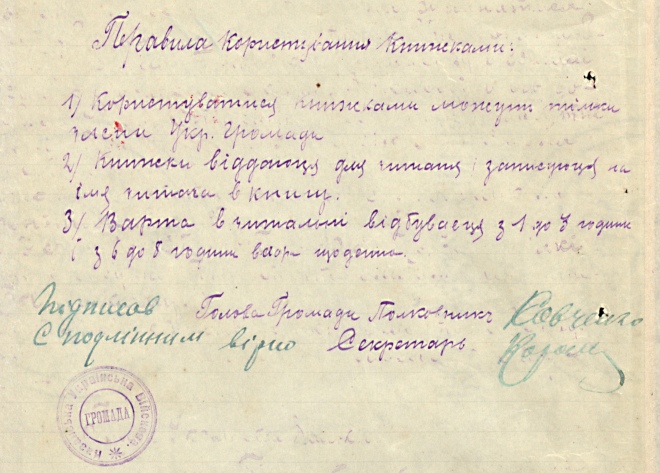 Правила користування книжками.
1) Користуватися книжками можут тільки
члени Укр. Громади
2) Книжки віддаюця для читаня і записуюця на
імя читача в книгу.
3) Варта в читальні відбуваєця з 1 до 3 години
і з 6 до 8 години вечора щоденно.
Підписав Голова Громади Полковник Ковченко
С подлінним вірно Секретарь
Українська Військова
ГРОМАДА